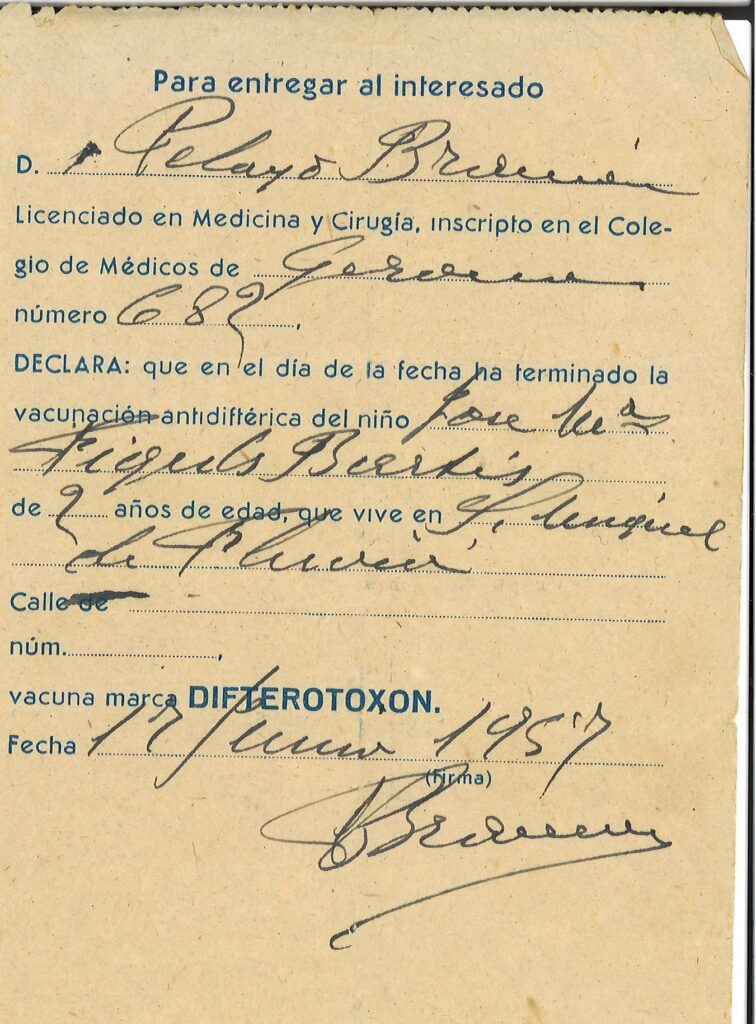 Para entregar al interesado
D. Pelayo
Licenciado en Medicina y Cirugía, inscripto en el Cole-
gio de Médicos de Gerona
número 682,
DECLARA: que en el día de la fecha ha terminado la
vacunación antidiftérica del niño Jose Mª
de 2 años de edad, que vive en S. Miguel
de Fluviá
Calle de
núm.
vacuna marca DIFTEROTOXON.
Fecha 17 Junio 1957
(firma)